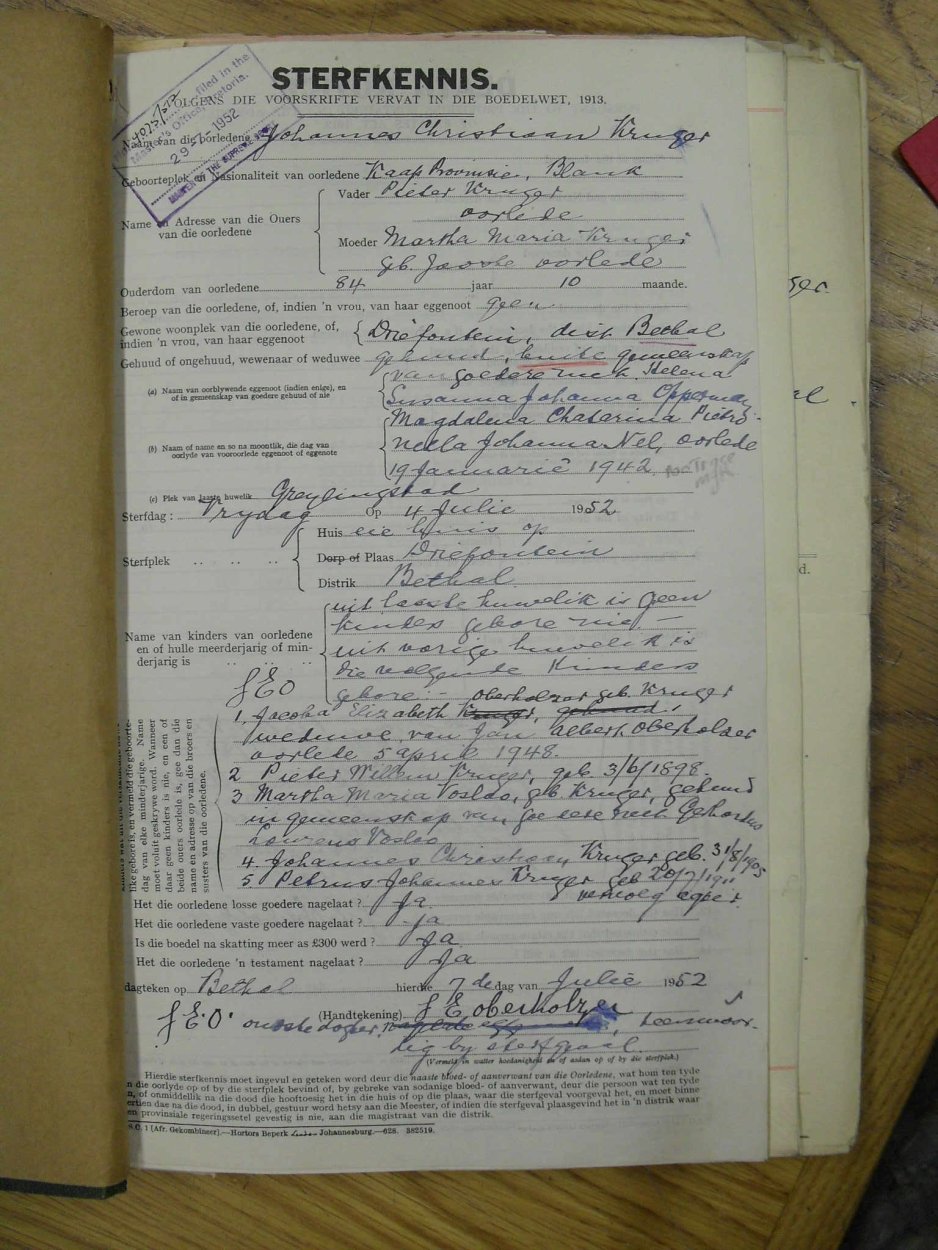 STERFKENNIS.
VOLGENS DIE VOORSKRIFTE VERVAT IN DIE BOEDELWET, 1913.
filed in the
Master's Office, Pretoria.
29-7-1952
MASTER OF THE SUPREME COURT
Naam van die oorledene Johannes Christiaan Kruger
Geboorteplek en Nasionaliteit van oorledene Kaap Provinsie, Blank
Name en Adresse van die Ouers van die oorledene
Vader Pieter Kruger
oorlede
Moeder Martha Maria Kruger
geb. Jooste oorlede
Ouderdom van oorledene 84 jaar 10 maande.
Beroep van die oorledene, of, indien 'n vrou, van haar eggenoot geen
Gewone woonplek van die oorledene, of, indien 'n vrou, van haar eggenoot Driefontein, dist Bethal
Gehuud of ongehuud, wewenaar of weduwee gehuud, buite gemeenskap
van goedere met Helena
(a) Naam van oorblywende eggenoot (indien enige), en of in gemeenskap van goedere gehuud of nie
Susanna Johanna Opperman
Magdalena Chatarina Pietro-
(b) Naam of name en so na moontlik, die dag van oorlyde van vooroorlede eggenoot of eggenote
nella Johanna Nel, oorlede
19 Januarie 1942
(c) Plek van laaste huwelik Greylingstad
Sterfdag: Vrydag Op 4 Julie 1952
Sterfplek
Huis eie huis op
Dorp of Plaas Driefontein
Distrik Bethal
Name van kinders van oorledene en of hulle meerderjarig of minderjarig is
uit laaste huwelik is geen
kinders gebore nie —
uit vorige huwelik is
die volgende kinders
gebore :-
JEO
Oberholzer geb. Kruger
1. Jacoba Elizabeth Kruger, gehuud,
weduwe van Jan Albert Oberholzer
oorlede 5 April 1948.
2 Pieter Willem Kruger, geb. 3/6/1898.
3 Martha Maria Vosloo, geb Kruger, gehuud
in gemeenskap van goedere met Gerhardus
Lourens Vosloo
4. Johannes Christiaan Kruger geb. 31/8/1905
5 Petrus Johannes Kruger geb 20/7/1911
vervolg agter.
like gebore is, en vermeld die geboorte-
dag van elke minderjarige. Name
moet voluit geskrywe word. Wanneer
daar geen kinders is nie, en een of
beide ouers oorlede is, gee dan die
name en adresse op van die broers en
susters van die oorledene.
Het die oorledene losse goedere nagelaat? Ja
Het die oorledene vaste goedere nagelaat? Ja
Is die boedel na skatting meer as £300 werd? Ja
Het die oorledene 'n testament nagelaat? Ja
dagteken op Bethal hierdie 7 de dag van Julie 1952
(Handtekening) J E Oberholzer
J.E.O. oudste dogter, teenwoor-
dig by sterfgeval.
(Vermeld in watter hoedanigheid en of asdan op of by die sterfplek.)
Hierdie sterfkennis moet ingevul en geteken word deur die naaste bloed- of aanverwant van die Oorledene, wat hom ten tyde
die oorlyde op of by die sterfplek bevind of, by gebreke van sodanige bloed- of aanverwant, deur die persoon wat ten tyde
of onmiddelik na die dood die hooftoesig het in die huis of op die plaas, waar die sterfgeval voorgeval het, en moet binne
dae na die dood, in dubbel, gestuur word hetsy aan die Meester, of indien die sterfgeval plaasgevind het in 'n distrik waar
provinsiale regeringssetel gevestig is nie, aan die magistraat van die distrik.
S.C. 1 [Afr. Gekombineer].—Hortors Beperk Johannesburg.—628. 382519.